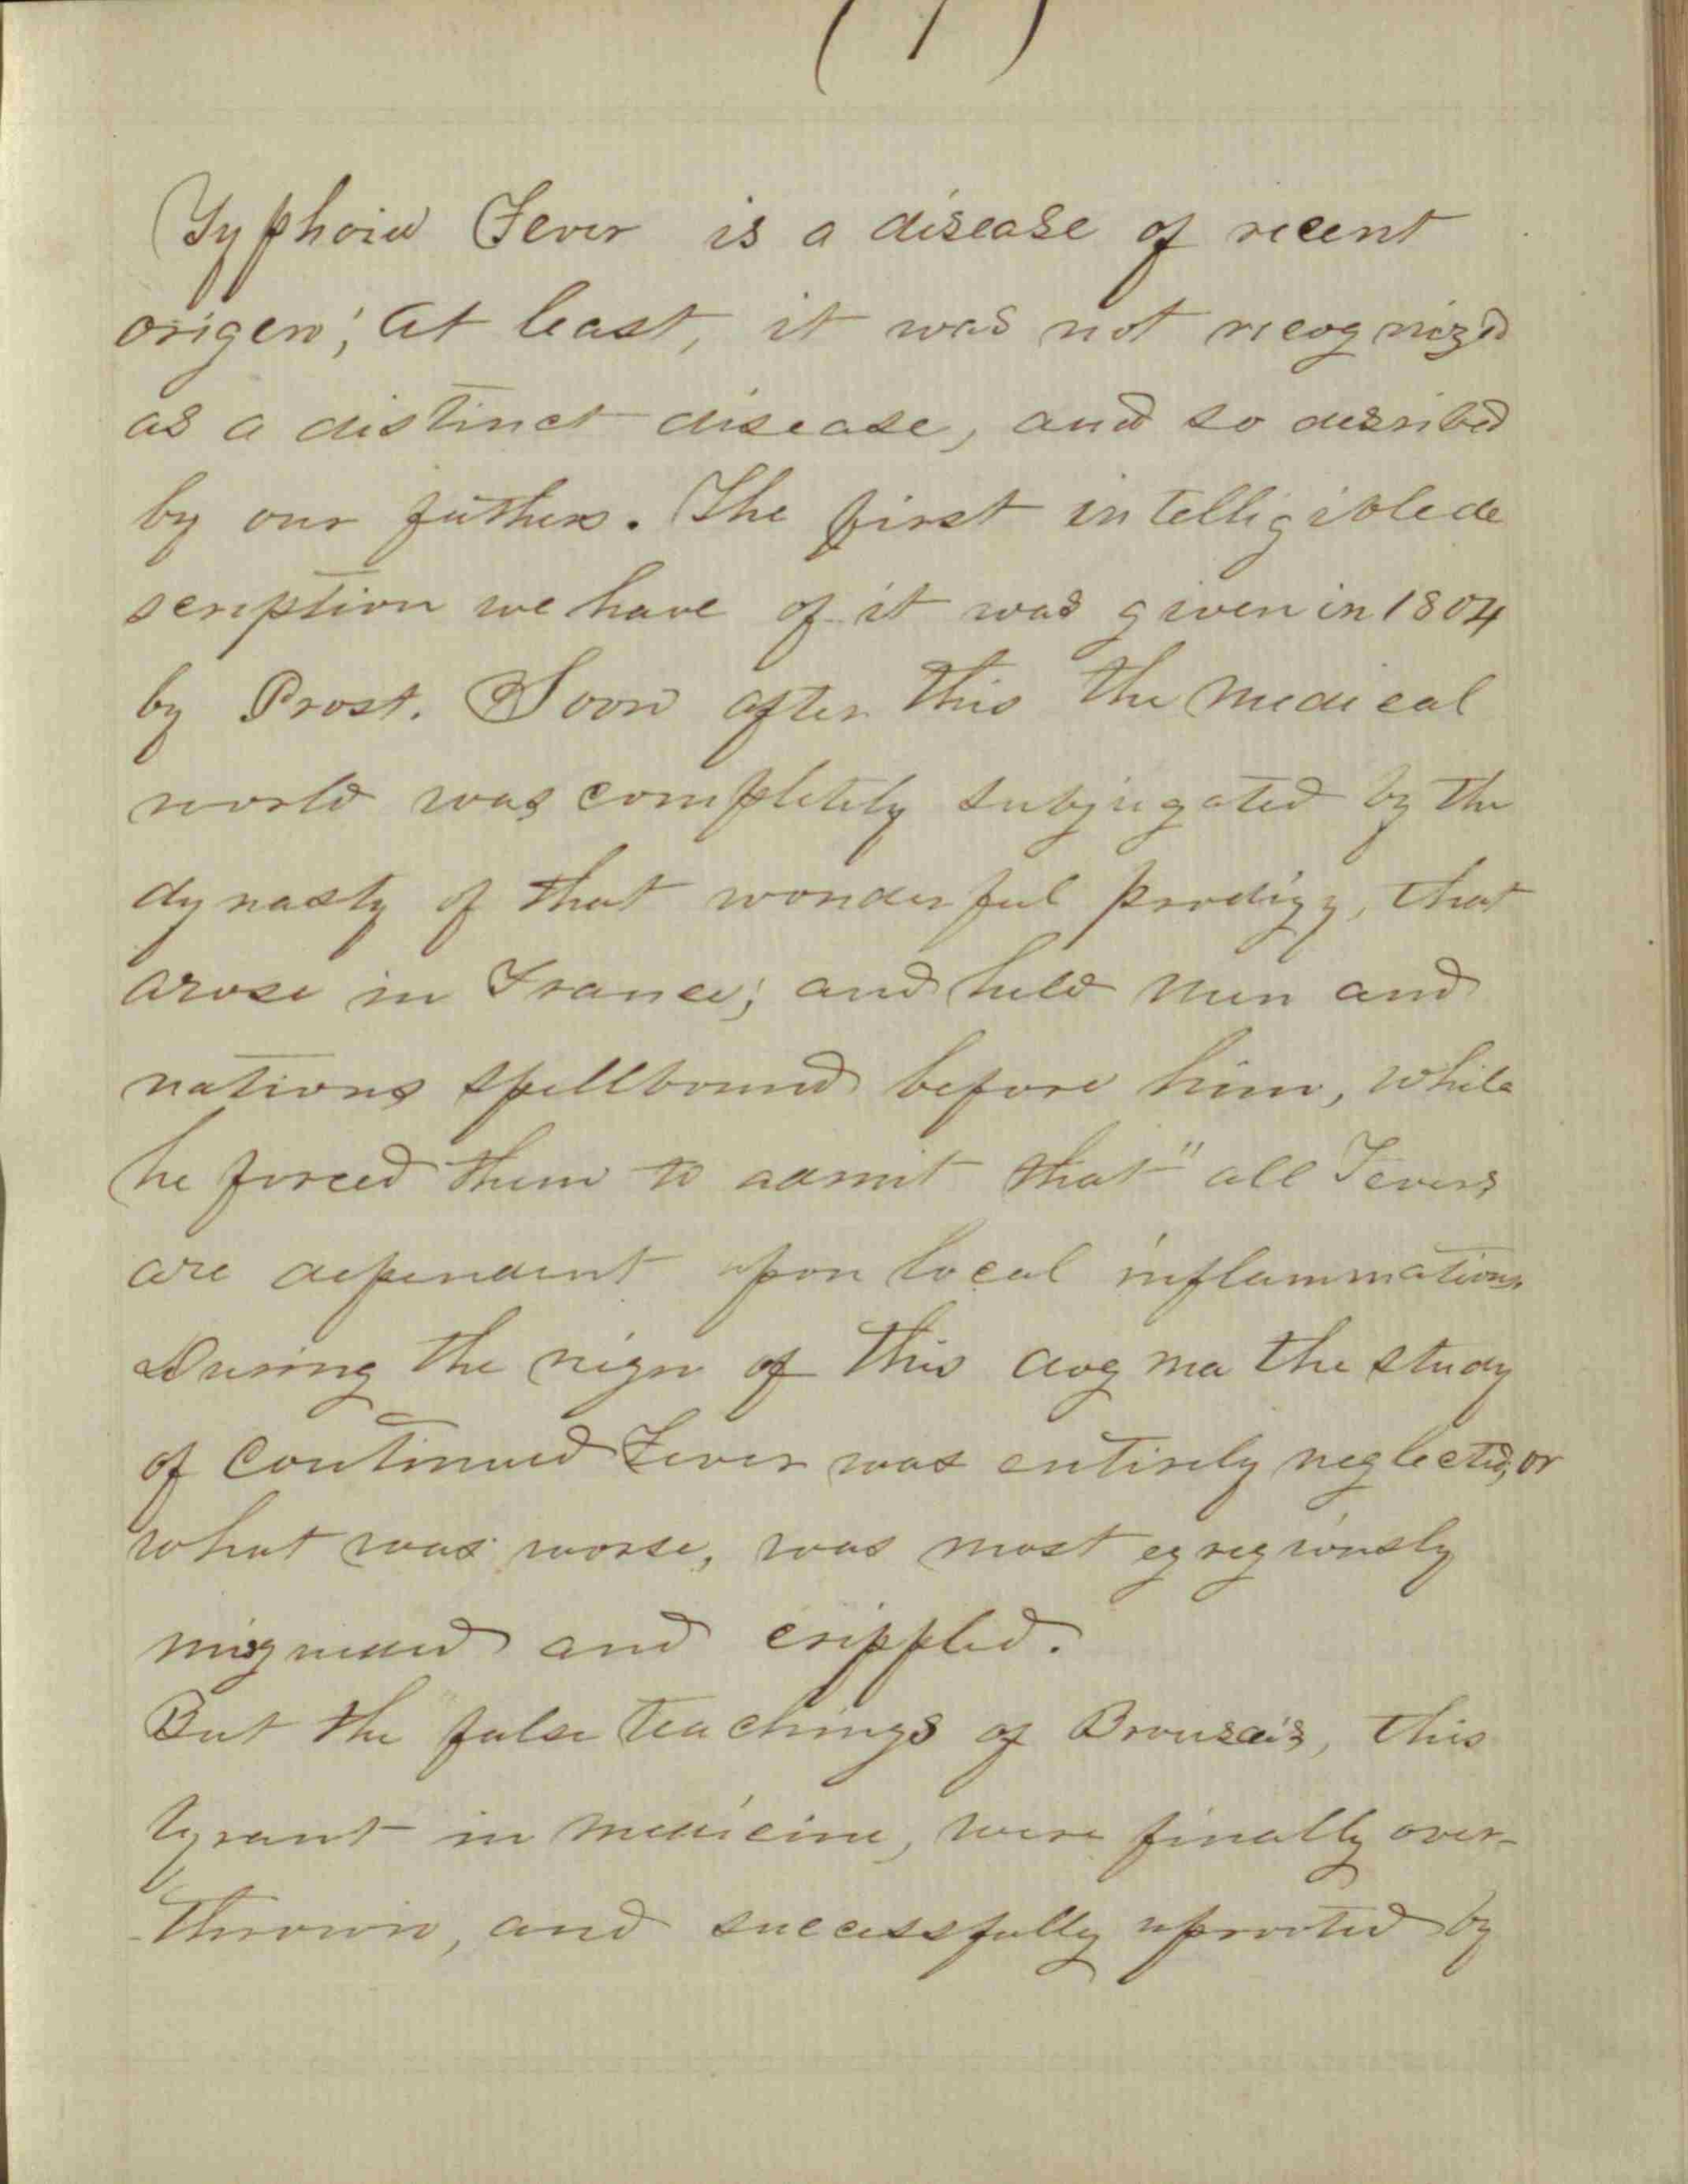 (1)
Typhoid Fever is a disease of recent
origen; At least, it was not recognized
as a distinct disease, and so desribed
by our fathers. The first intelligible de
scription we have of it was given in 1804
by Prost. Soon after this the medical
world was completely subjugated by the
dynasty of that wonderful prodigy, that
arose in France; and held men and
nations spellbound before him, while
he forced them to admit that "all Fevers
are dependent upon local inflammations
During the reign of this dogma the study
of Continued Fever was entirely neglected, or
what was worse, was most egregiously
misguided and crippled.
But the false teachings of Brousais, this
tyrant in medicine, were finally over-
-thrown, and successfully uprooted by